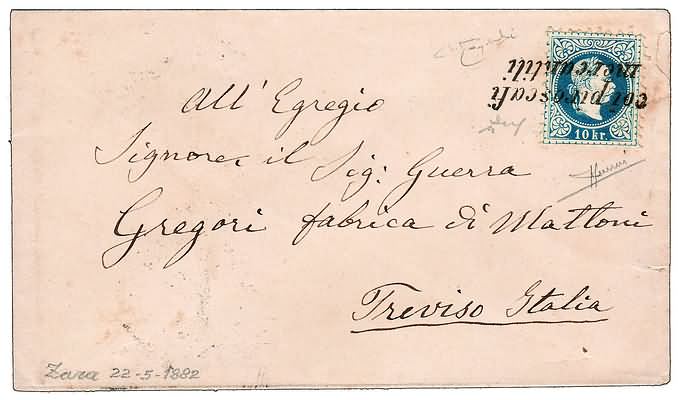 coi piroscafi
mercantili
10 kr.
All' Egregio
Signore il Sig: Guerra
Gregori fabrica di Mattoni
Treviso Italia
Zara 22-5-1882